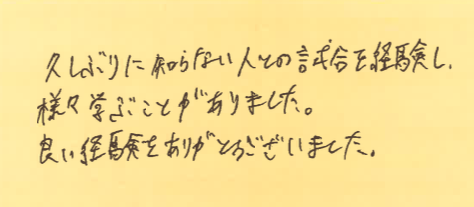 久しぶりに知らない人との試合を経験し、
様々学ぶことがありました。
良い経験をありがとうございました。